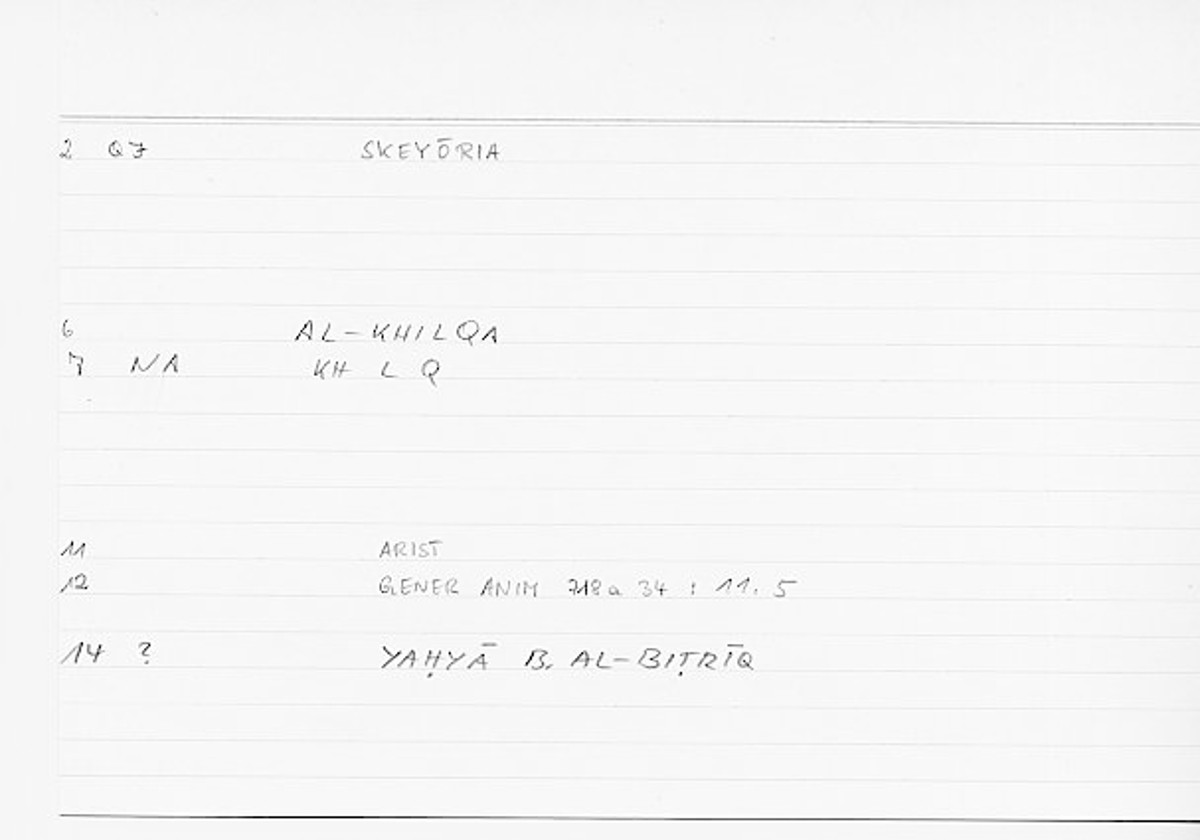 2 Q7 SKEYŌRIA
6 AL-KHILQA
7 NA KH L Q
11 ARIST
12 GENER ANIM 718a 34 : 11. 5
14 ? YAḤYĀ B. AL-BIṬRĪQ